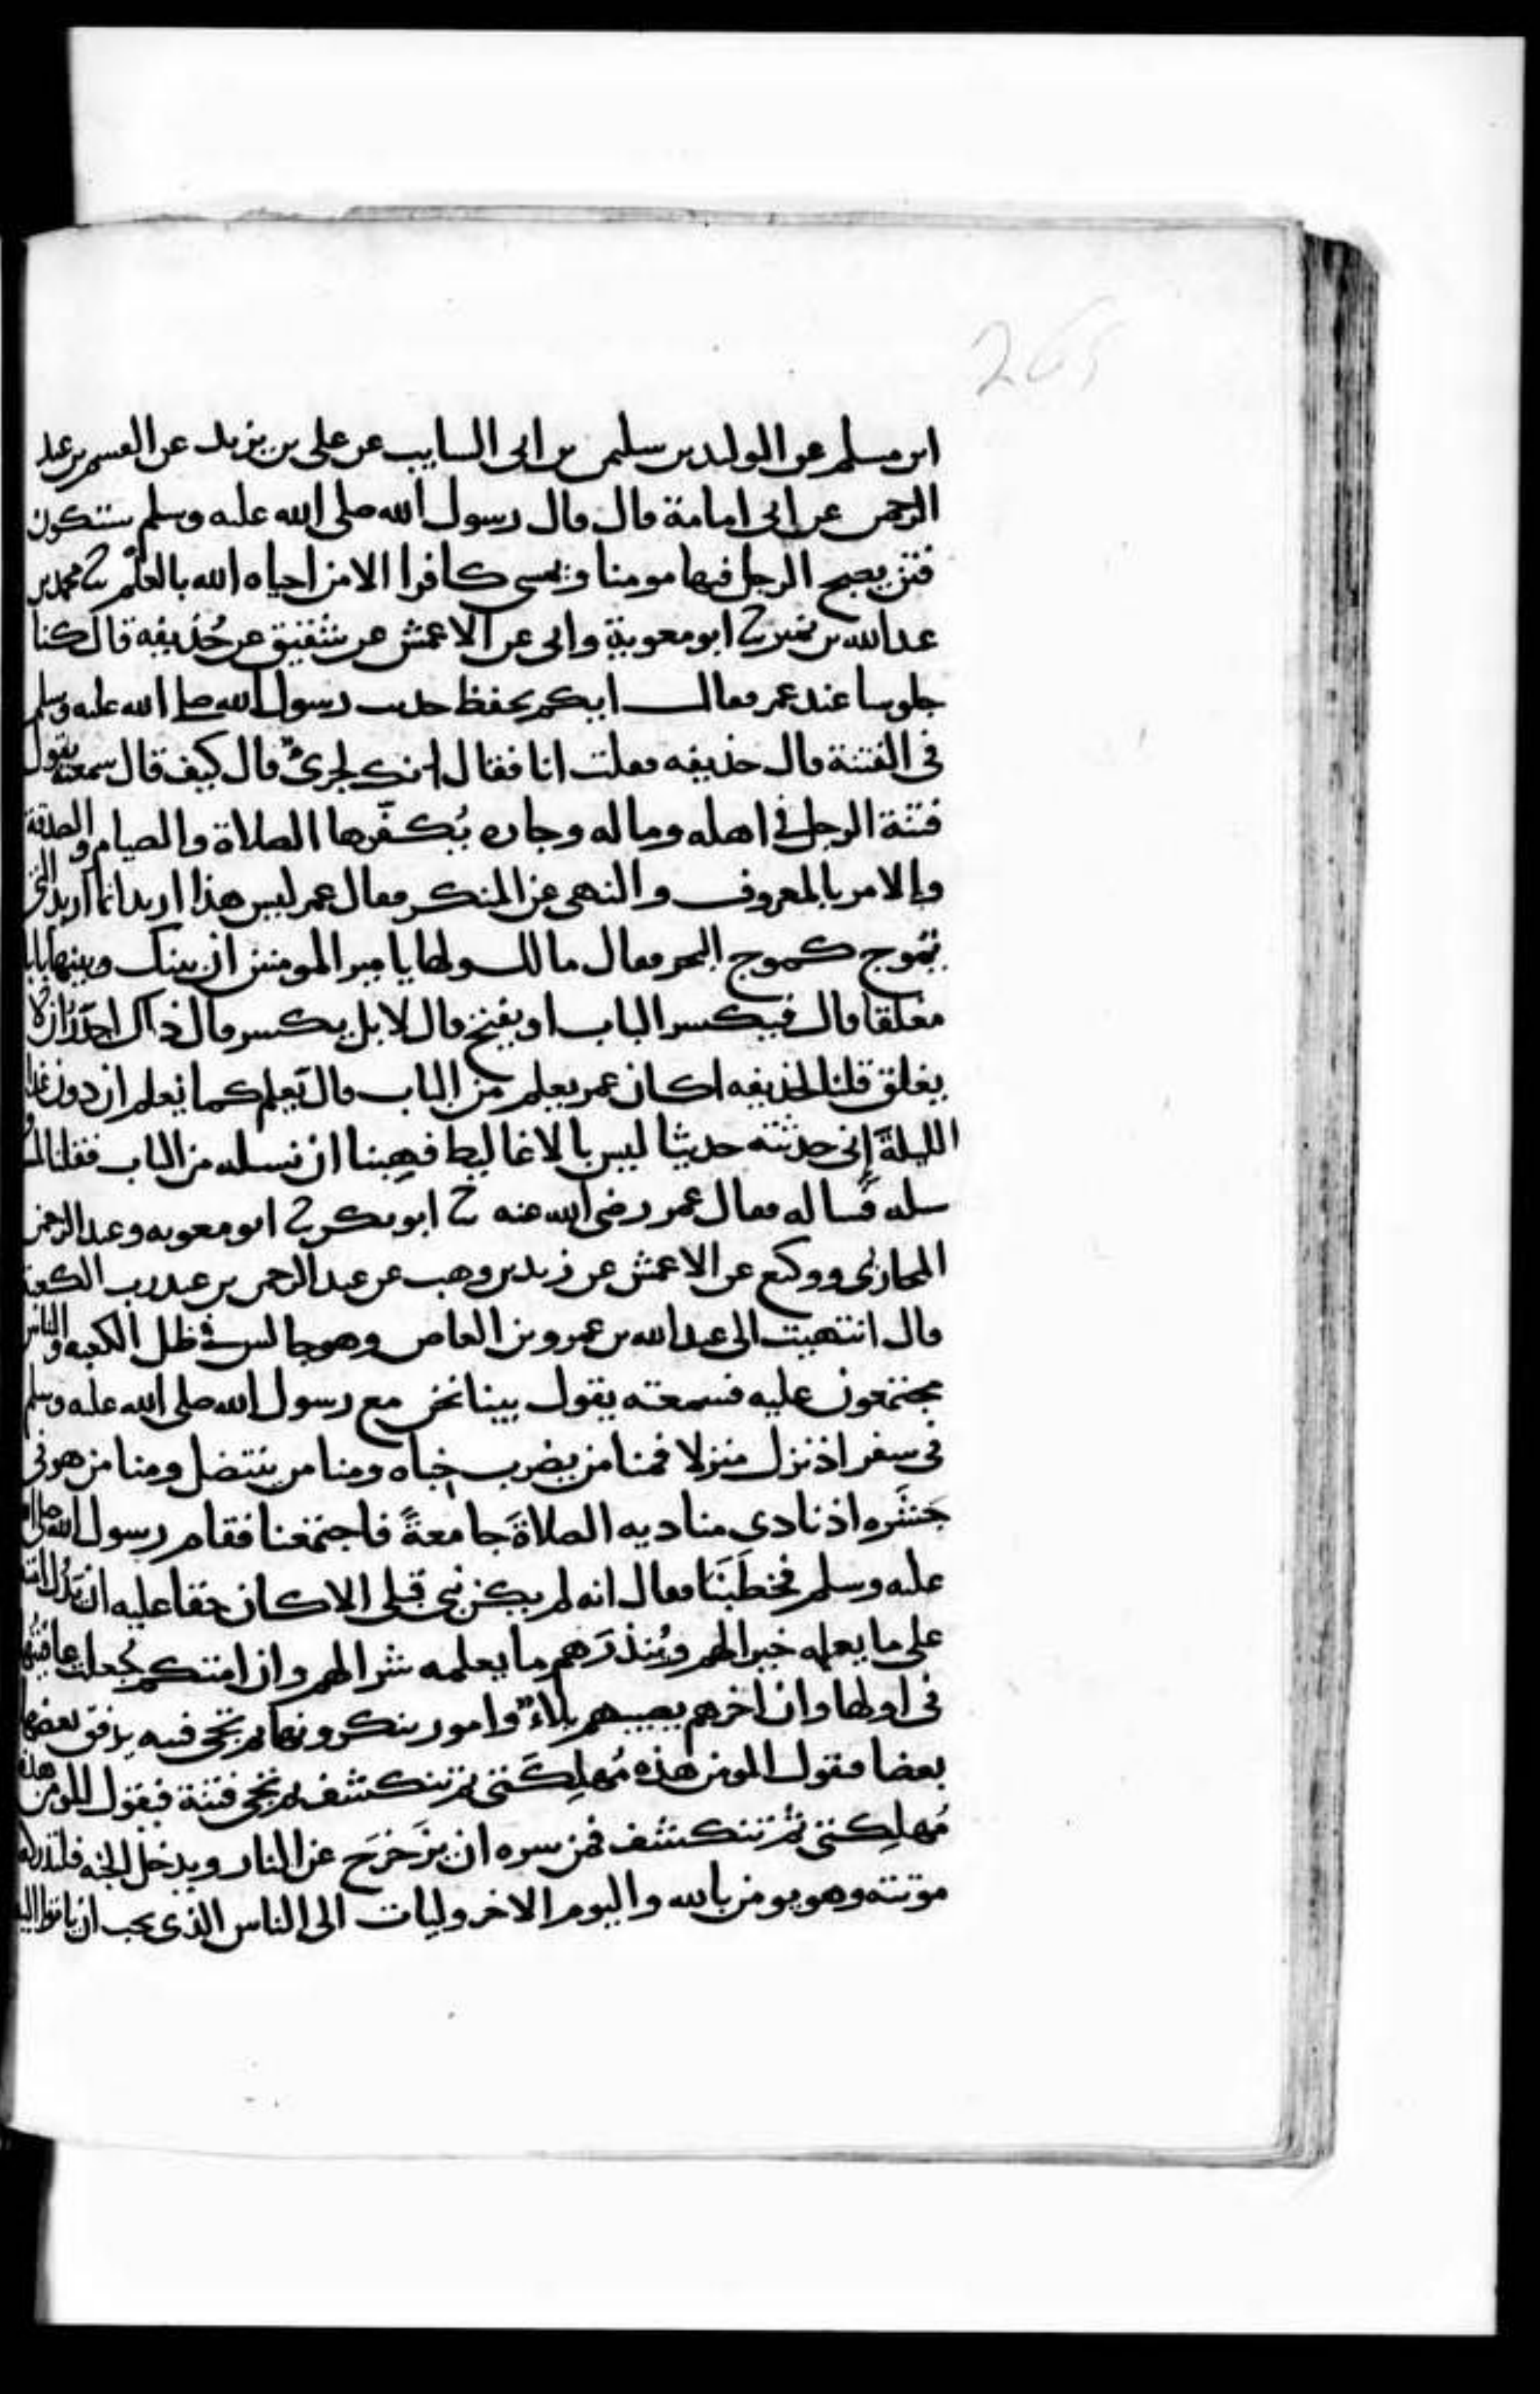 265
ابن مسلم عن الوليد بن سليمن بن ابى السايب عن على بن يزيد عن القسم بن عبد
الرحمن عن ابى امامة قال قال رسول الله صلى الله عليه وسلم ستكون
فتن يصبح الرجل فيها مومنا ويمسى كافرا الا من احياه الله بالعلم ثنا محمد بن
عبد الله بن نمير ثنا ابو معوية وابى عن الاعمش عن شقيق عن حُذيفه قال كنا
جلوسا عند عمر فقال ايكم يحفظ حديث رسول الله صلى الله عليه وسلم
فى الفتنة قال حذيفه فقلت انا فقال انك لجرىءٌ قال كيف قال سمعته يقول
فتنة الرجل فى اهله وماله وجاره يُكفّرها الصلاة والصيام والصدقة
والامر بالمعروف والنهى عن المنكر فقال عمر ليس هذا اريد انما اريد التى
تموج كموج البحر فقال ما لك ولها يا مير المومنين ان بينك وبينها بابا
مغلقا قال فيكسر الباب او يفتح قال لا بل يكسر قال ذاك اجدَرُ ان لا
يغلق قلنا لحذيفه اكان عمر يعلم من الباب قال نعم كما يعلم ان دون غد
الليلةَ إنى حدثته حديثا ليس بالاغاليط فهِبنا ان نسله من الباب فقلنا
سله فسأله فقال عمر رضى الله عنه ثنا ابو بكر ثنا ابو معويه وعبد الرحمن
المحاربى ووكيع عن الاعمش عن زيد بن وهب عن عبد الرحمن بن عبد رب الكعبة
قال انتهيت الى عبد الله بن عمرو بن العاص وهو جالس فى ظل الكعبه والناس
مجتمعون عليه فسمعته يقول بينا نحن مع رسول الله صلى الله عليه وسلم
فى سفر اذ نزل منزلا فمنا من يضرب خباه ومنا من ينتضل ومنا من هو فى
جَشَره اذ نادى مناديه الصلاةَ جامعةً فاجتمعنا فقام رسول الله صلى الله
عليه وسلم فخطَبَنَا فقال انه لم يكن نبى قبلى الا كان حقا عليه ان يَدُل امته
على ما يعلمه خيرا لهم ويُنذرَهم ما يعلمه شرا لهم وان امتكم جُعلت عافيتُها
فى اولها وان اخرهم يصيبهم بلاءٌ وامور ينكرونها ثم تجى فتنه يرقق بعضها
بعضا فيقول المومن هذه مُهلِكَتى ثم تنكشف ثم تجى فتنة فيقول المومن هذه
مُهلِكتى ثم تنكشف فمن سره ان يزَحزَحَ عن النار ويدخل الجنه فلتدركه
موتته وهو يومن بالله واليوم الاخر وليات الى الناس الذى يحب ان ياتوا اليه